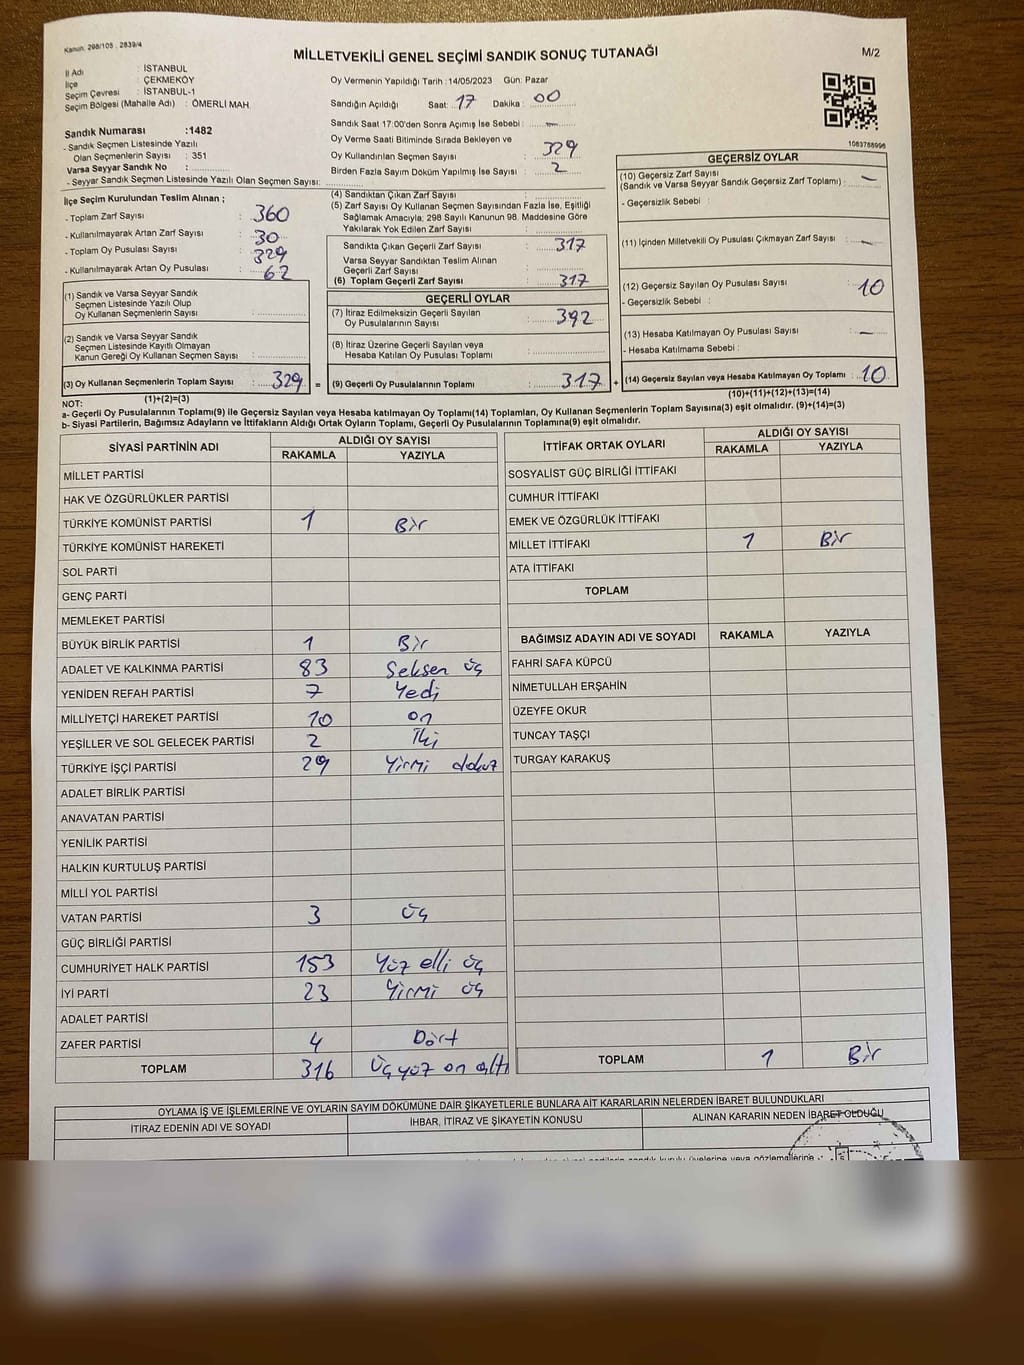 Kanun: 298/105 , 2839/4
MİLLETVEKİLİ GENEL SEÇİMİ SANDIK SONUÇ TUTANAĞI
M/2
İl Adı : İSTANBUL
İlçe : ÇEKMEKÖY
Seçim Çevresi : İSTANBUL-1
Seçim Bölgesi (Mahalle Adı) : ÖMERLİ MAH.
Sandık Numarası :1482
- Sandık Seçmen Listesinde Yazılı
Olan Seçmenlerin Sayısı : 351
Varsa Seyyar Sandık No :
- Seyyar Sandık Seçmen Listesinde Yazılı Olan Seçmen Sayısı:
Oy Vermenin Yapıldığı Tarih : 14/05/2023 Gün: Pazar
Sandığın Açıldığı Saat: 17 Dakika : 00
Sandık Saat 17:00'den Sonra Açımış İse Sebebi : -
Oy Verme Saati Bitiminde Sırada Bekleyen ve
Oy Kullandırılan Seçmen Sayısı : 329
Birden Fazla Sayım Döküm Yapılmış İse Sayısı : 2
1083788996
İlçe Seçim Kurulundan Teslim Alınan ;
- Toplam Zarf Sayısı : 360
- Kullanılmayarak Artan Zarf Sayısı : 30
- Toplam Oy Pusulası Sayısı : 329
- Kullanılmayarak Artan Oy Pusulası : 62
(1) Sandık ve Varsa Seyyar Sandık
Seçmen Listesinde Yazılı Olup
Oy Kullanan Seçmenlerin Sayısı :
(2) Sandık ve Varsa Seyyar Sandık
Seçmen Listesinde Kayıtlı Olmayan
Kanun Gereği Oy Kullanan Seçmen Sayısı :
(3) Oy Kullanan Seçmenlerin Toplam Sayısı : 329 =
(1)+(2)=(3)
(4) Sandıktan Çıkan Zarf Sayısı :
(5) Zarf Sayısı Oy Kullanan Seçmen Sayısından Fazla İse, Eşitliği
Sağlamak Amacıyla; 298 Sayılı Kanunun 98. Maddesine Göre
Yakılarak Yok Edilen Zarf Sayısı :
Sandıkta Çıkan Geçerli Zarf Sayısı : 317
Varsa Seyyar Sandıktan Teslim Alınan
Geçerli Zarf Sayısı :
(6) Toplam Geçerli Zarf Sayısı : 317
GEÇERLİ OYLAR
(7) İtiraz Edilmeksizin Geçerli Sayılan
Oy Pusulalarının Sayısı : 392
(8) İtiraz Üzerine Geçerli Sayılan veya
Hesaba Katılan Oy Pusulası Toplamı :
(9) Geçerli Oy Pusulalarının Toplamı : 317 +
GEÇERSİZ OYLAR
(10) Geçersiz Zarf Sayısı
(Sandık ve Varsa Seyyar Sandık Geçersiz Zarf Toplamı) : -
- Geçersizlik Sebebi :
(11) İçinden Milletvekili Oy Pusulası Çıkmayan Zarf Sayısı : -
(12) Geçersiz Sayılan Oy Pusulası Sayısı : 10
- Geçersizlik Sebebi :
(13) Hesaba Katılmayan Oy Pusulası Sayısı : -
- Hesaba Katılmama Sebebi :
(14) Geçersiz Sayılan veya Hesaba Katılmayan Oy Toplamı : 10
(10)+(11)+(12)+(13)=(14)
NOT:
a- Geçerli Oy Pusulalarının Toplamı(9) ile Geçersiz Sayılan veya Hesaba katılmayan Oy Toplamı(14) Toplamları, Oy Kullanan Seçmenlerin Toplam Sayısına(3) eşit olmalıdır. (9)+(14)=(3)
b- Siyasi Partilerin, Bağımsız Adayların ve İttifakların Aldığı Ortak Oyların Toplamı, Geçerli Oy Pusulalarının Toplamına(9) eşit olmalıdır.
SİYASİ PARTİNİN ADI ALDIĞI OY SAYISI
RAKAMLA YAZIYLA
MİLLET PARTİSİ
HAK VE ÖZGÜRLÜKLER PARTİSİ
TÜRKİYE KOMÜNİST PARTİSİ 1 Bir
TÜRKİYE KOMÜNİST HAREKETİ
SOL PARTİ
GENÇ PARTİ
MEMLEKET PARTİSİ
BÜYÜK BİRLİK PARTİSİ 1 Bir
ADALET VE KALKINMA PARTİSİ 83 Seksen üç
YENİDEN REFAH PARTİSİ 7 Yedi
MİLLİYETÇİ HAREKET PARTİSİ 10 on
YEŞİLLER VE SOL GELECEK PARTİSİ 2 İki
TÜRKİYE İŞÇİ PARTİSİ 29 Yirmi dokuz
ADALET BİRLİK PARTİSİ
ANAVATAN PARTİSİ
YENİLİK PARTİSİ
HALKIN KURTULUŞ PARTİSİ
MİLLİ YOL PARTİSİ
VATAN PARTİSİ 3 üç
GÜÇ BİRLİĞİ PARTİSİ
CUMHURİYET HALK PARTİSİ 153 Yüz elli üç
İYİ PARTİ 23 Yirmi üç
ADALET PARTİSİ
ZAFER PARTİSİ 4 Dört
TOPLAM 316 Üçyüz on altı
İTTİFAK ORTAK OYLARI ALDIĞI OY SAYISI
RAKAMLA YAZIYLA
SOSYALİST GÜÇ BİRLİĞİ İTTİFAKI
CUMHUR İTTİFAKI
EMEK VE ÖZGÜRLÜK İTTİFAKI
MİLLET İTTİFAKI 1 Bir
ATA İTTİFAKI
TOPLAM
BAĞIMSIZ ADAYIN ADI VE SOYADI RAKAMLA YAZIYLA
FAHRİ SAFA KÜPCÜ
NİMETULLAH ERŞAHİN
ÜZEYFE OKUR
TUNCAY TAŞÇI
TURGAY KARAKUŞ
TOPLAM 1 Bir
OYLAMA İŞ VE İŞLEMLERİNE VE OYLARIN SAYIM DÖKÜMÜNE DAİR ŞİKAYETLERLE BUNLARA AİT KARARLARIN NELERDEN İBARET BULUNDUKLARI
İTİRAZ EDENİN ADI VE SOYADI İHBAR, İTİRAZ VE ŞİKAYETİN KONUSU ALINAN KARARIN NEDEN İBARET OLDUĞU